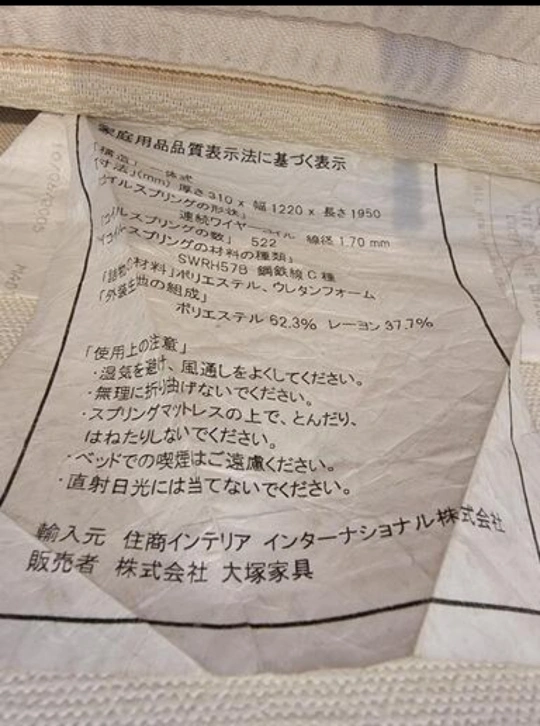 家庭用品品質表示法に基づく表示
「構造」 一体式
「寸法」(mm) 厚さ310 x 幅1220 x 長さ1950
「コイルスプリングの形状」
連続ワイヤーコイル 線径 1.70 mm
「コイルスプリングの数」 522
「コイルスプリングの材料の種類」
SWRH57B 鋼鉄線C種
「詰物の材料」ポリエステル、ウレタンフォーム
「外装生地の組成」
ポリエステル 62.3% レーヨン 37.7%
「使用上の注意」
・湿気を避け、風通しをよくしてください。
・無理に折り曲げないでください。
・スプリングマットレスの上で、とんだり、
はねたりしないでください。
・ベッドでの喫煙はご遠慮ください。
・直射日光には当てないでください。
輸入元 住商インテリア インターナショナル株式会社
販売者 株式会社 大塚家具